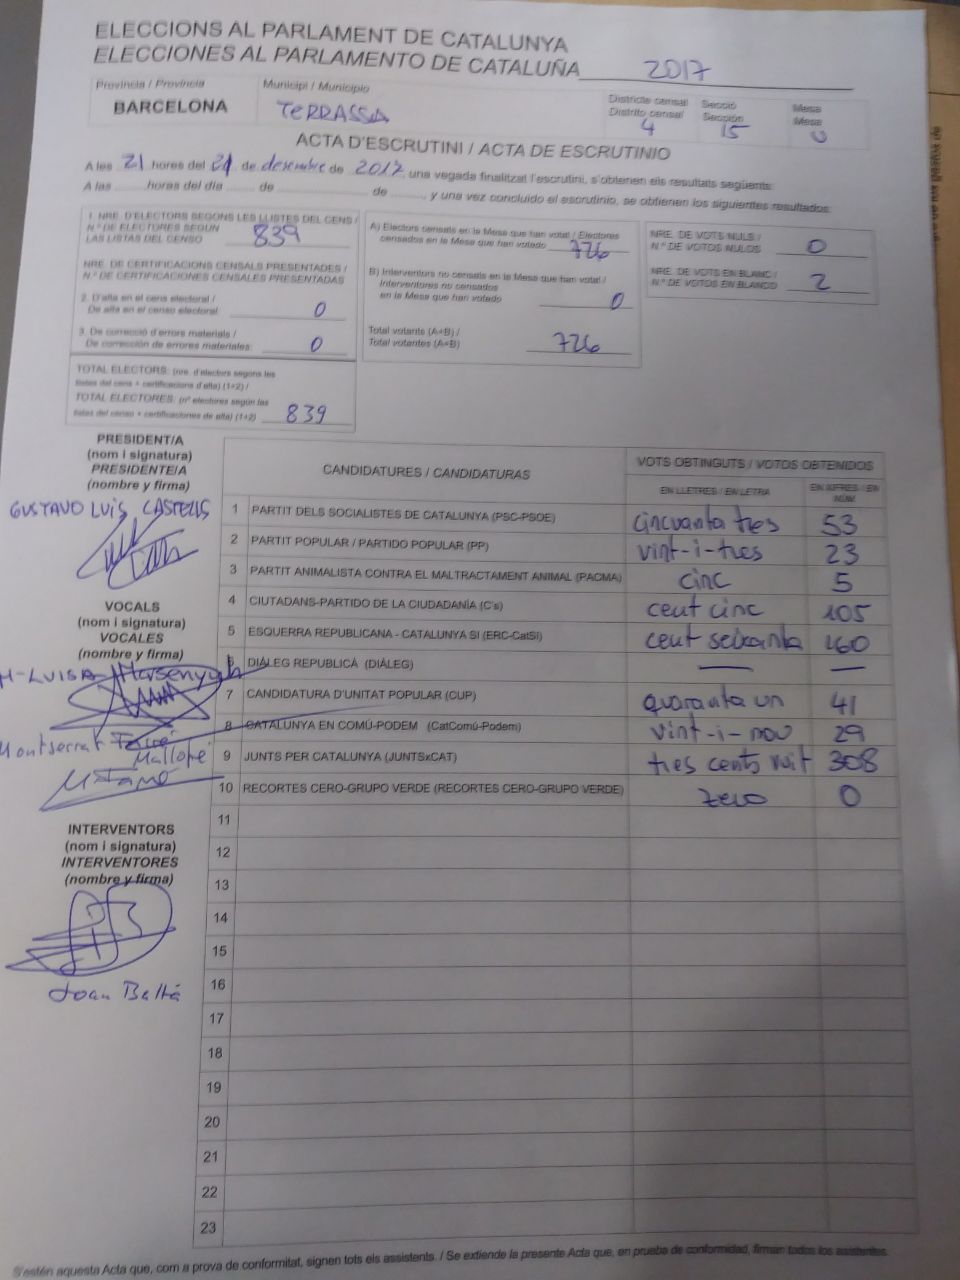 ELECCIONS AL PARLAMENT DE CATALUNYA
ELECCIONES AL PARLAMENTO DE CATALUÑA 2017
Província / Provincia
BARCELONA
Municipi / Municipio
TERRASSA
Districte censal
Distrito censal
4
Secció
Sección
15
Mesa
Mesa
U
ACTA D'ESCRUTINI / ACTA DE ESCRUTINIO
A les 21 hores del 21 de desembre de 2017, una vegada finalitzat l'escrutini, s'obtenen els resultats següents:
A las ........ horas del día ....... de ........................ de ........, y una vez concluido el escrutinio, se obtienen los siguientes resultados:
1. NRE. D'ELECTORS SEGONS LES LLISTES DEL CENS /
N.º DE ELECTORES SEGÚN
LAS LISTAS DEL CENSO 839
NRE. DE CERTIFICACIONS CENSALS PRESENTADES /
N.º DE CERTIFICACIONES CENSALES PRESENTADAS
2. D'alta en el cens electoral /
De alta en el censo electoral 0
3. De correcció d'errors materials /
De corrección de errores materiales: 0
TOTAL ELECTORS: (nre. d'electors segons les
llistes del cens + certificacions d'alta) (1+2) /
TOTAL ELECTORES: (nº electores según las
listas del censo + certificaciones de alta) (1+2) 839
A) Electors censats en la Mesa que han votat / Electores
censados en la Mesa que han votado 726
B) Interventors no censats en la Mesa que han votat /
Interventores no censados
en la Mesa que han votado 0
Total votants (A+B) /
Total votantes (A+B) 726
NRE. DE VOTS NULS /
N.º DE VOTOS NULOS 0
NRE. DE VOTS EN BLANC /
N.º DE VOTOS EN BLANCO 2
PRESIDENT/A
(nom i signatura)
PRESIDENTE/A
(nombre y firma)
GUSTAVO LUIS CASTELLS
VOCALS
(nom i signatura)
VOCALES
(nombre y firma)
M-LUISA
Montserrat
INTERVENTORS
(nom i signatura)
INTERVENTORES
(nombre y firma)
Joan Baltá
CANDIDATURES / CANDIDATURAS
VOTS OBTINGUTS / VOTOS OBTENIDOS
EN LLETRES / EN LETRA
EN XIFRES / EN NÚM.
1 PARTIT DELS SOCIALISTES DE CATALUNYA (PSC-PSOE) cincuanta tres 53
2 PARTIT POPULAR / PARTIDO POPULAR (PP) vint-i-tres 23
3 PARTIT ANIMALISTA CONTRA EL MALTRACTAMENT ANIMAL (PACMA) cinc 5
4 CIUTADANS-PARTIDO DE LA CIUDADANÍA (C's) cent cinc 105
5 ESQUERRA REPUBLICANA - CATALUNYA SÍ (ERC-CatSí) cent seixanta 160
6 DIÀLEG REPUBLICÀ (DIÀLEG) — —
7 CANDIDATURA D'UNITAT POPULAR (CUP) quaranta un 41
8 CATALUNYA EN COMÚ-PODEM (CatComú-Podem) vint-i-nou 29
9 JUNTS PER CATALUNYA (JUNTSxCAT) tres cents vuit 308
10 RECORTES CERO-GRUPO VERDE (RECORTES CERO-GRUPO VERDE) zero 0
11
12
13
14
15
16
17
18
19
20
21
22
23
S'estén aquesta Acta que, com a prova de conformitat, signen tots els assistents. / Se extiende la presente Acta que, en prueba de conformidad, firman todos los asistentes.